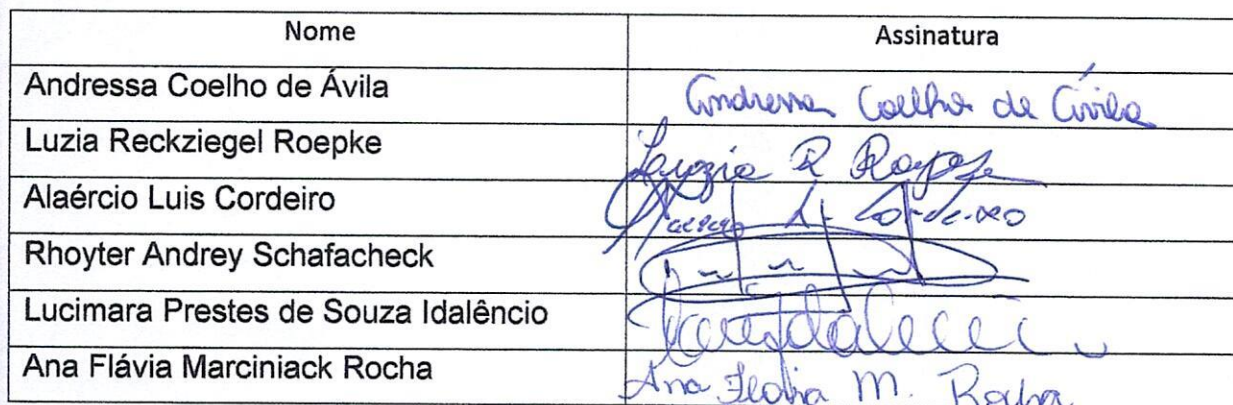 Nome Assinatura
Andressa Coelho de Ávila Andressa Coelho de Ávila
Luzia Reckziegel Roepke Luzia R Roepke
Alaércio Luis Cordeiro Alaércio L. Cordeiro
Rhoyter Andrey Schafacheck
Lucimara Prestes de Souza Idalêncio
Ana Flávia Marciniack Rocha Ana Flavia M. Rocha